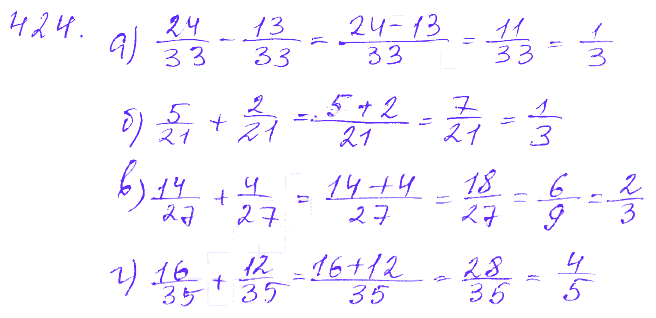 424. а) 24/33 - 13/33 = 24-13/33 = 11/33 = 1/3
б) 5/21 + 2/21 = 5+2/21 = 7/21 = 1/3
в) 14/27 + 4/27 = 14+4/27 = 18/27 = 6/9 = 2/3
г) 16/35 + 12/35 = 16+12/35 = 28/35 = 4/5